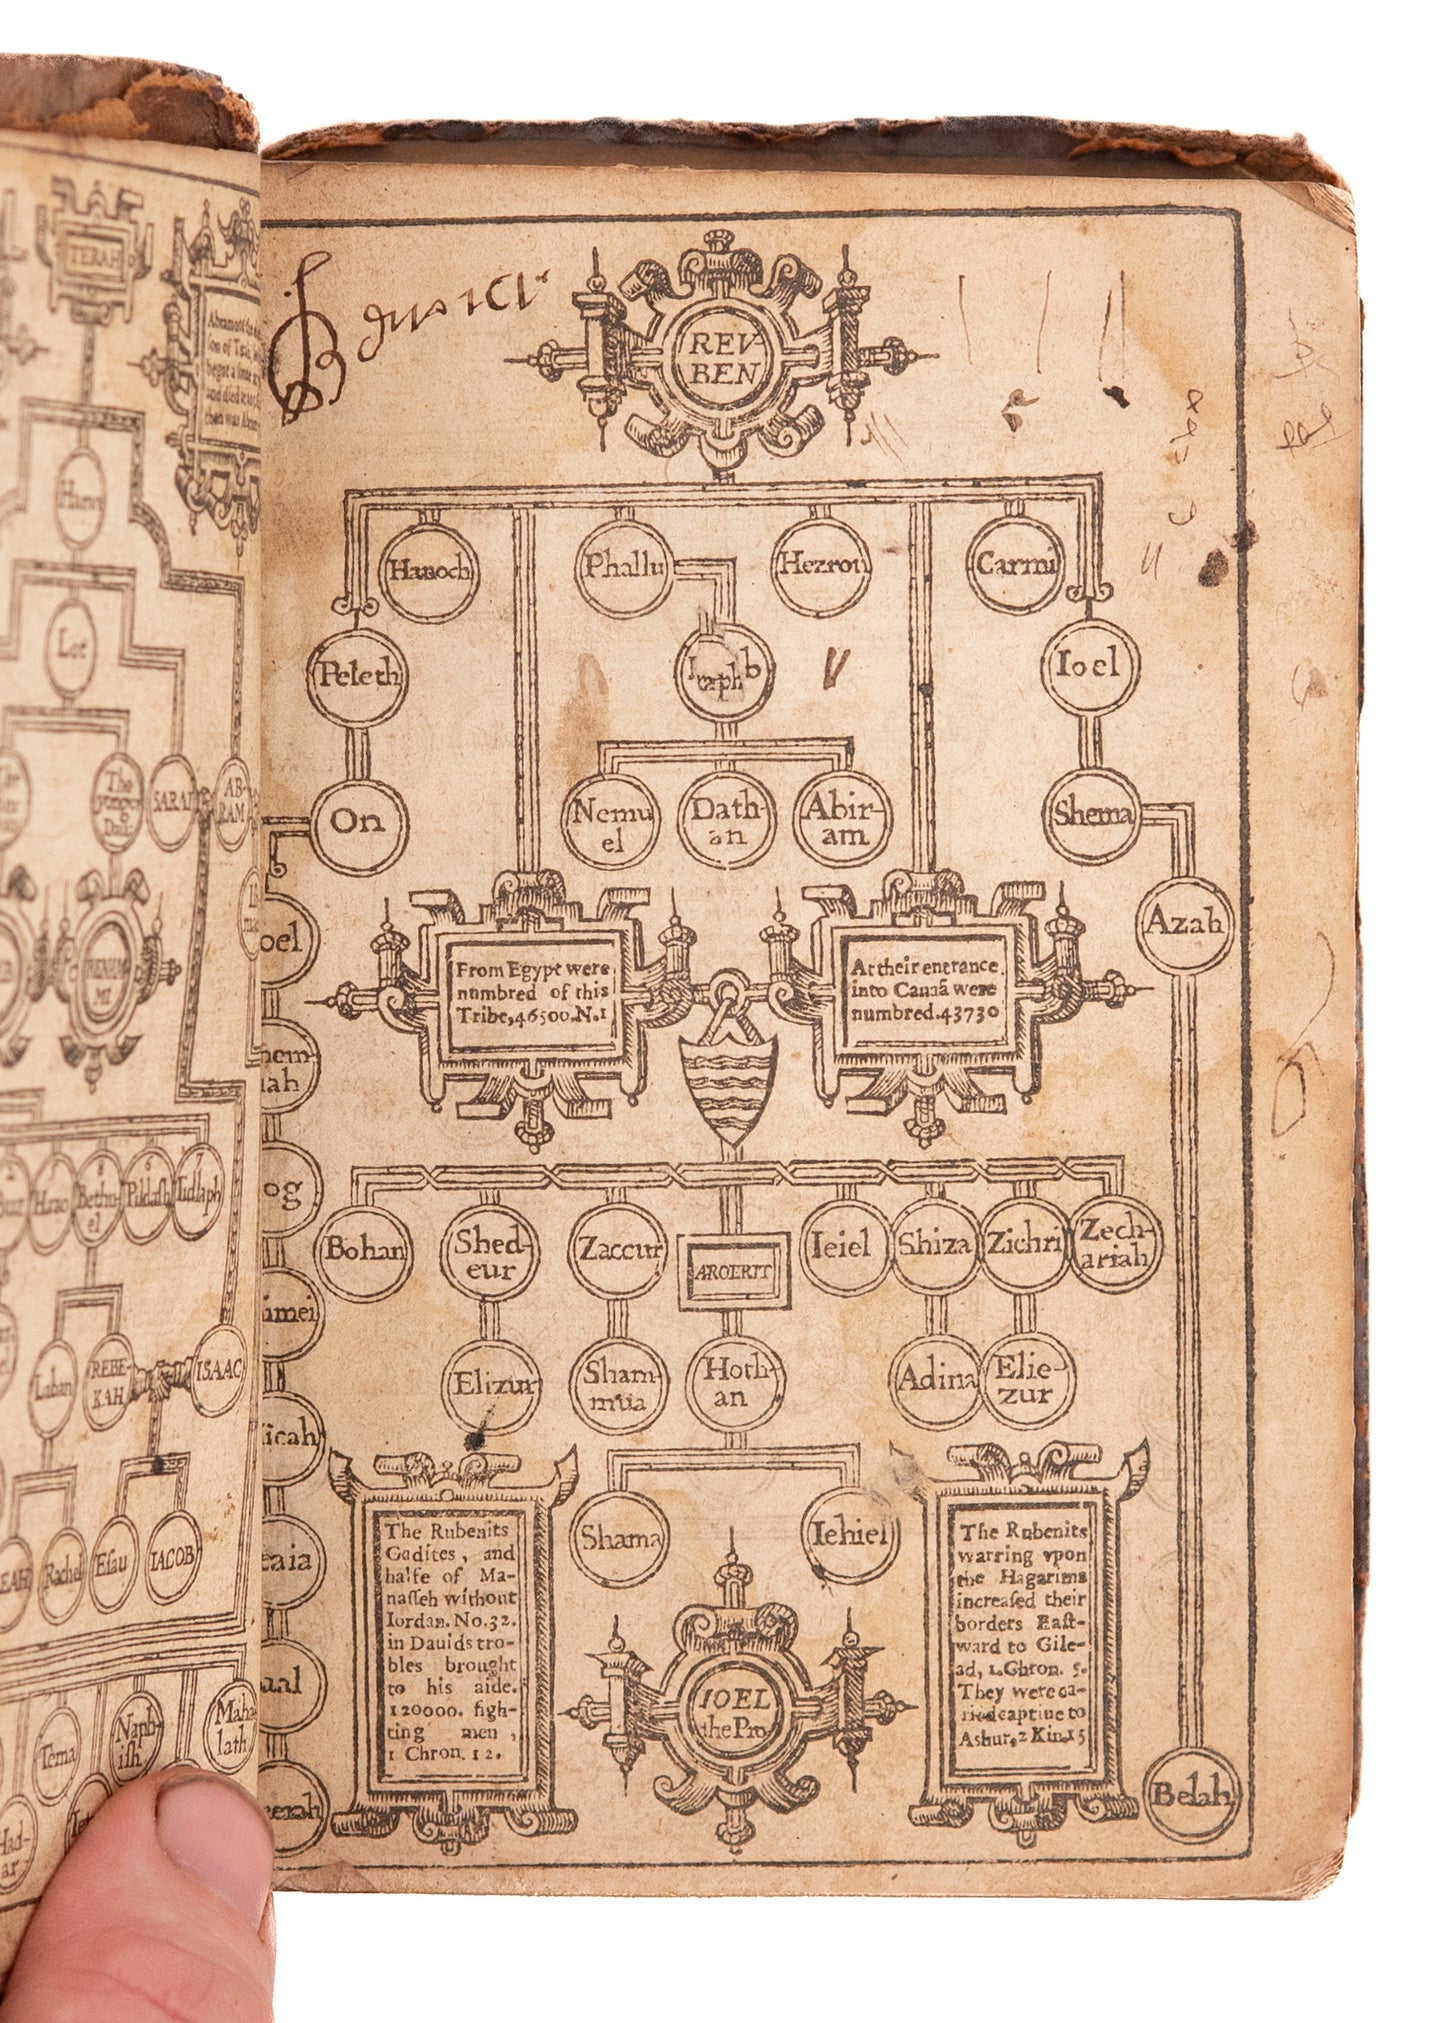 TERAH
Haran
Lot
The
yonger
Dau.
SARAI
AB-
RAM
Buz
Hazo
Bethu-
el
Pildash
Iidlaph
Laban
REBE-
KAH
ISAAC
Rachel
Esau
IACOB
Tema
Naph-
ish
Maha-
lath
Had-
ar
REV-
BEN
Hanoch
Phallu
Hezron
Carmi
Peleth
Ioel
On
Nemu
el
Dath-
an
Abir-
am
Shema
Azah
oel
From Egypt were
numbred of this
Tribe,46500.N.1
At their entrance
into Canaā were
numbred.43730
hem-
iah
og
imei
icah
eaia
aal
eerah
Bohan
Shed-
eur
Zaccur
AROERIT
Ieiel
Shiza
Zichri
Zech-
ariah
Elizur
Sham-
mua
Hoth-
an
Adina
Elie-
zur
Shama
Iehiel
The Rubenits
Gadites, and
halfe of Ma-
nasseh without
Iordan. No.32.
in Dauids tro-
bles brought
to his aide.
120000. figh-
ting men,
1 Chron. 12.
IOEL
the Pro.
The Rubenits
warring vpon
the Hagarims
increased their
borders East-
ward to Gile-
ad, 1.Chron. 5.
They were ca-
ried captiue to
Ashur,2 Kin.15
Belah